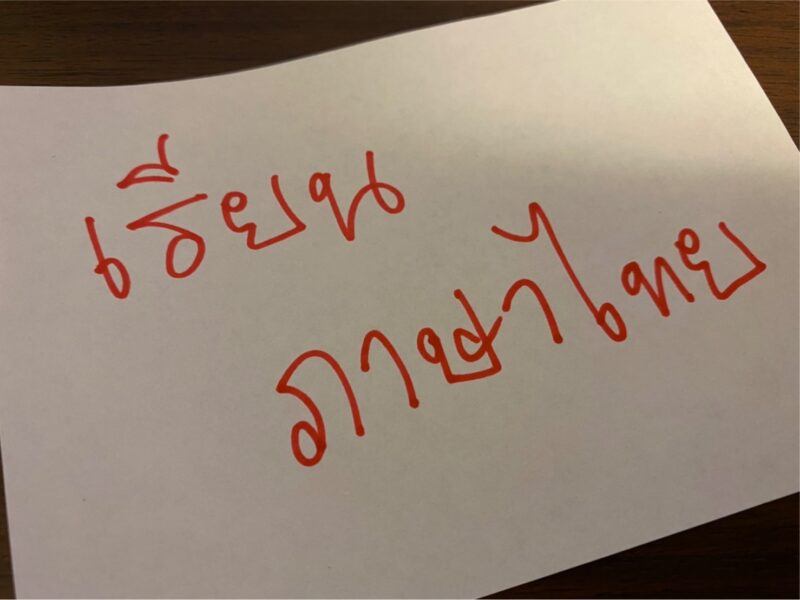 เรียน
ภาษาไทย